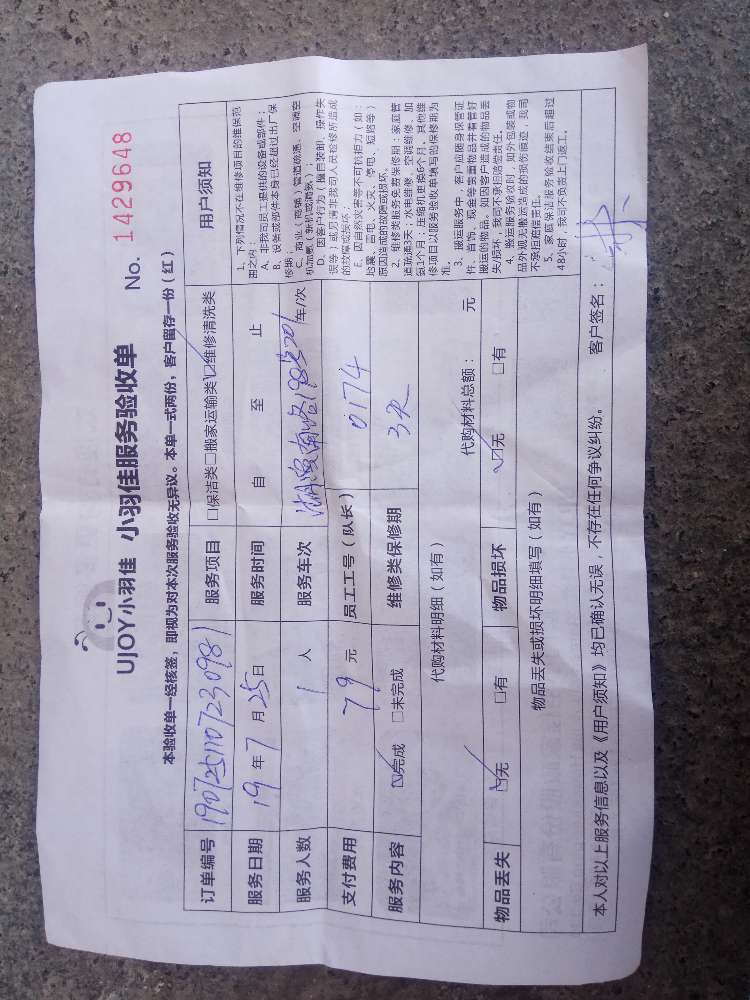 UJOY小羽佳 小羽佳服务验收单
No. 1429648
本验收单一经核签，即视为对本次服务验收无异议。本单一式两份，客户留存一份（红）
订单编号 1907251107230981 服务项目 □保洁类 □搬家运输类 ☑维修清洗类
服务日期 19 年 7 月 25 日 服务时间 自 至 止
服务人数 1 人 服务车次 车/次
支付费用 79 元 员工工号（队长） 0174
服务内容 ☑完成 □未完成 维修类保修期 3天
代购材料明细（如有） 代购材料总额： 元
物品丢失 ☑无 □有 物品损坏 ☑无 □有
物品丢失或损坏明细填写（如有）
用户须知
1、下列情况不在维修项目的维保范
围之内：
A、非我司员工提供的设备或部件；
B、设备或部件本身已经超过出厂保
修期；
C、商业（商铺）管道疏通、空调空
机加氟（新机或漏氟）；
D、因客户行为（擅自装卸、操作失
误等）或另请非我司人员检修所造成
的故障或损坏；
E、因自然灾害等不可抗拒力（如：
地震、雷电、火灾、停电、短路等）
原因造成的故障或损坏。
2、维修类服务免费保修期：家庭管
道疏通3天，水电维修、空调维修、加
氟1个月；压缩机更换6个月，其他维
修项目以服务验收单填写的保修期为
准。
3、搬运服务中，客户应随身保管证
件、首饰、现金等贵重物品并看管好
搬运的物品。如因客户造成的物品丢
失/损坏，我司不承担赔偿责任。
4、搬运服务验收时，如外包装或物
品外观无搬运造成的损伤痕迹，我司
不承担赔偿责任。
5、家庭保洁服务验收结束后超过
48小时，我司不负责上门返工。
本人对以上服务信息以及《用户须知》均已确认无误，不存在任何争议纠纷。 客户签名：